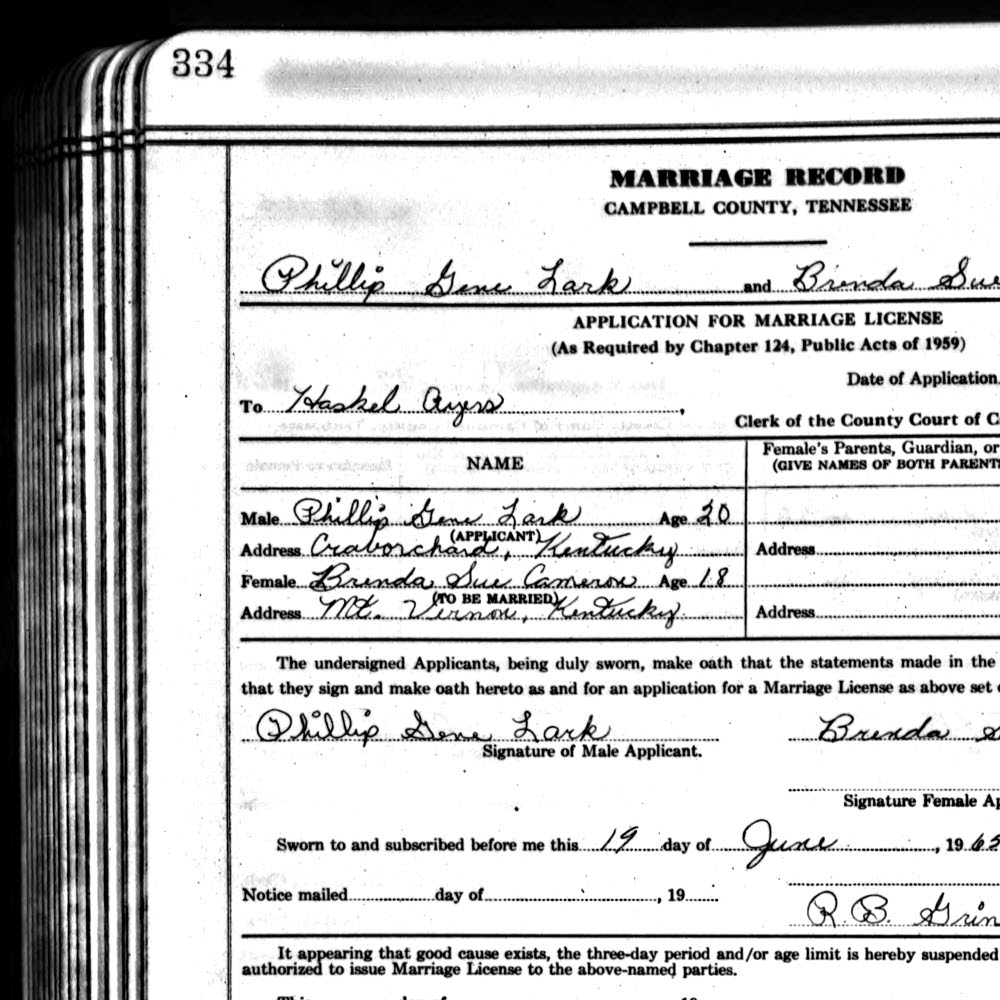 334
MARRIAGE RECORD
CAMPBELL COUNTY, TENNESSEE
Phillip Gene Lark and Brenda Sue
APPLICATION FOR MARRIAGE LICENSE
(As Required by Chapter 124, Public Acts of 1959)
Date of Application
To Haskel Ayers,
Clerk of the County Court of C
NAME
Female's Parents, Guardian, or
(GIVE NAMES OF BOTH PARENT
Male Phillip Gene Lark Age 20
(APPLICANT)
Address Craborchard, Kentucky Address
Female Brenda Sue Cameron Age 18
(TO BE MARRIED)
Address Mt. Vernon, Kentucky Address
The undersigned Applicants, being duly sworn, make oath that the statements made in the
that they sign and make oath hereto as and for an application for a Marriage License as above set
Phillip Gene Lark Brenda S
Signature of Male Applicant.
Signature Female Ap
Sworn to and subscribed before me this 19 day of June, 196
Notice mailed day of , 19
R. B. Grin
It appearing that good cause exists, the three-day period and/or age limit is hereby suspended
authorized to issue Marriage License to the above-named parties.